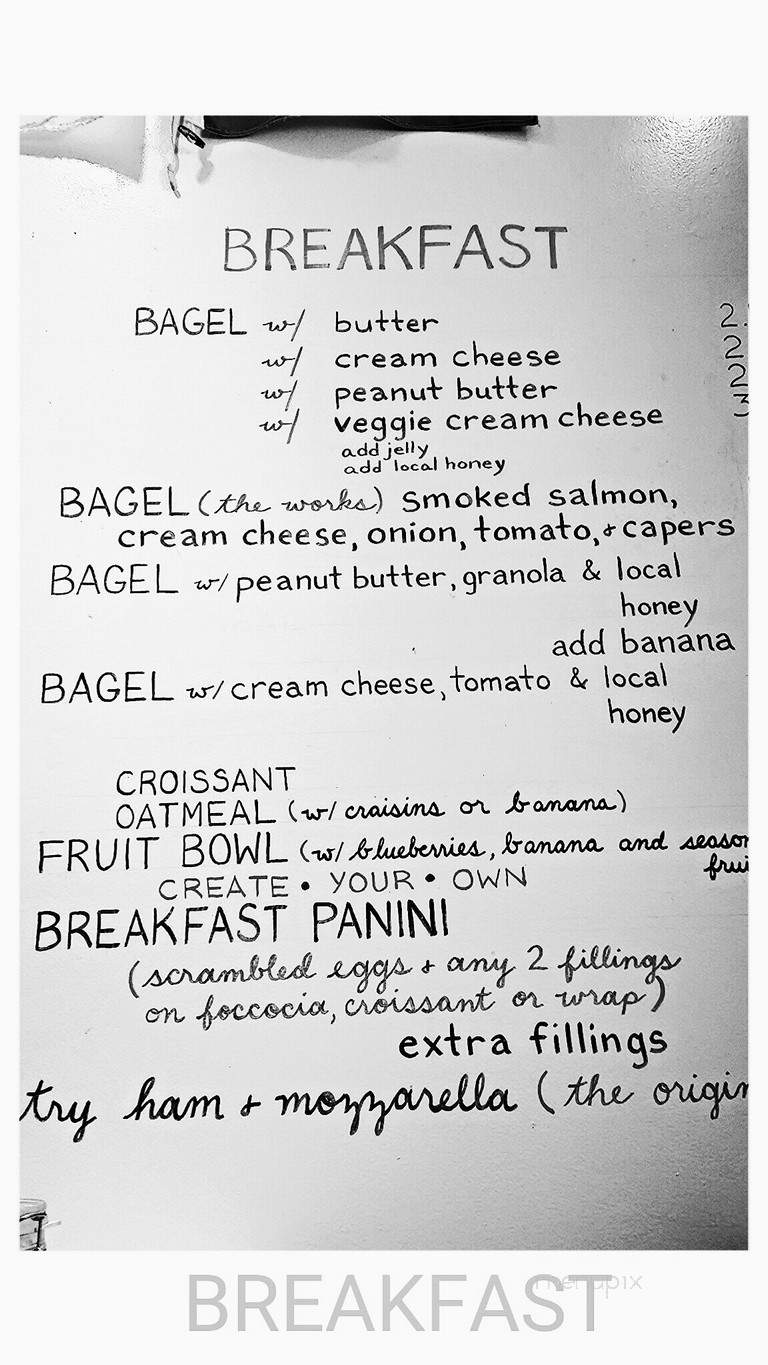 BREAKFAST
BAGEL w/ butter 2.
w/ cream cheese 2
w/ peanut butter 2
w/ veggie cream cheese
add jelly
add local honey
BAGEL (the works) smoked salmon,
cream cheese, onion, tomato, & capers
BAGEL w/ peanut butter, granola & local
honey
add banana
BAGEL w/ cream cheese, tomato & local
honey
CROISSANT
OATMEAL (w/ craisins or banana)
FRUIT BOWL (w/ blueberries, banana and season
frui
CREATE • YOUR • OWN
BREAKFAST PANINI
(scrambled eggs & any 2 fillings
on foccocia, croissant or wrap)
extra fillings
try ham & mozzarella (the origin
menupix
BREAKFAST